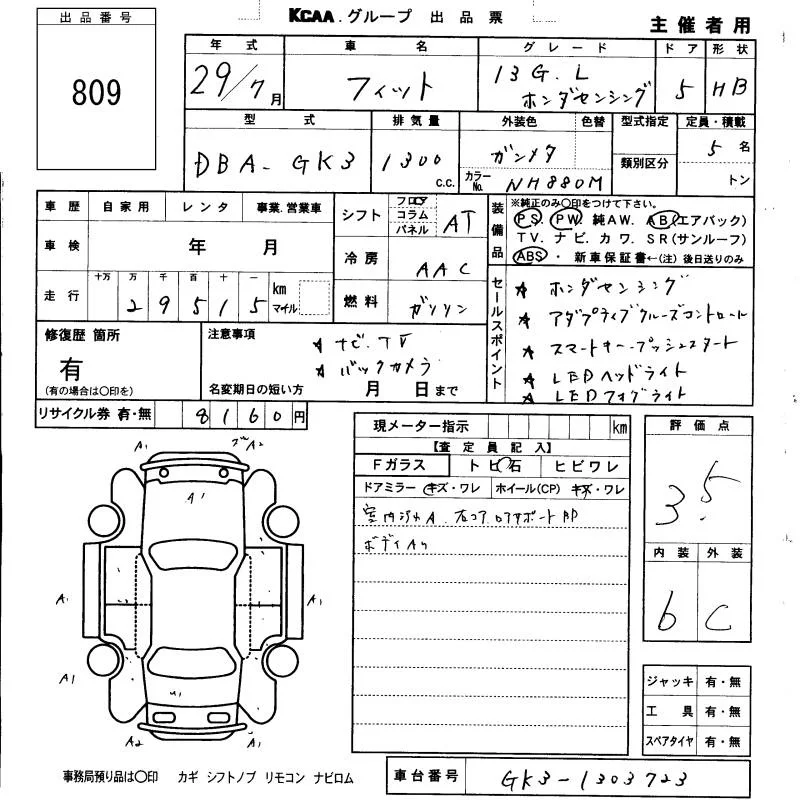 KCAA.グループ 出品票
主催者用
出品番号
809
年式 車名 グレード ドア 形状
29/7月 フィット 13G.L ホンダセンシング 5 HB
型式 排気量 外装色 色替 型式指定 定員・積載
DBA-GK3 1300 c.c. ガンメタ 5名
カラーNo. NH880M 類別区分 トン
車歴 自家用 レンタ 事業.営業車
車検 年 月
十万 万 千 百 十 一
走行 29515 km マイル
シフト フロア コラム パネル AT
冷房 AAC
燃料 ガソリン
装備品
※純正のみ〇印をつけて下さい。
PS PW 純AW. AB(エアバック)
TV. ナビ. カワ. SR(サンルーフ)
ABS ・ 新車保証書←(注)後日送りのみ
セールスポイント
★ ホンダセンシング
★ アダプティブクルーズコントロール
★ スマートキー・プッシュスタート
★ LEDヘッドライト
★ LEDフォグライト
修復歴 箇所
有
(有の場合は〇印を)
注意事項
★ ナビ.TV
★ バックカメラ
名変期日の短い方 月 日まで
リサイクル券 有・無 8160円
現メーター指示 km
【査定員記入】
Fガラス トビ石 ヒビワレ
ドアミラー キズ・ワレ ホイール(CP) キズ・ワレ
ボディAり
評価点
3.5
内装 外装
b C
ジャッキ 有・無
工具 有・無
スペアタイヤ 有・無
A1 A2
A1
A1 A1
A1 A1
A2 A1
事務局預り品は〇印 カギ シフトノブ リモコン ナビロム
車台番号 GK3-1303723